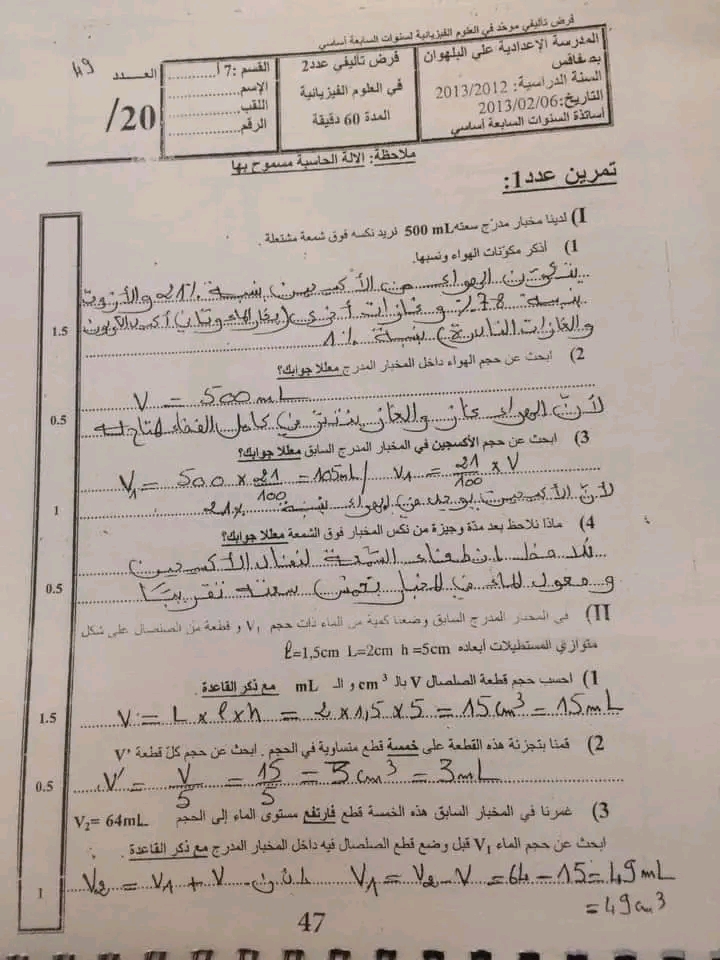 فرض تأليفي موحد في العلوم الفيزيائية لسنوات السابعة أساسي
المدرسة الإعدادية علي البلهوان بصفاقس
السنة الدراسية: 2013/2012
التاريخ: 2013/02/06
أساتذة السنوات السابعة أساسي
فرض تأليفي عدد2
في العلوم الفيزيائية
المدة 60 دقيقة
القسم :7 أ
الإسم
اللقب
الرقم
العدد
/20
49
ملاحظة: الالة الحاسبة مسموح بها
تمرين عدد1:
I) لدينا مخبار مدرّج سعته 500 mL نريد نكسه فوق شمعة مشتعلة .
1) أذكر مكوّنات الهواء ونسبها.
يتكوّن الهواء من الأكسجين بنسبة 21% والأزوت
بنسبة 78% وغازات أخرى (بخار الماء وثاني أكسيد الكربون
والغازات النادرة) بنسبة 1%
1.5
2) ابحث عن حجم الهواء داخل المخبار المدرج معللا جوابك؟
V = 500 mL
لأنّ الهواء غاز والغاز ينتشر في كامل الفضاء المتاح له
0.5
3) ابحث عن حجم الأكسجين في المخبار المدرج السابق معللا جوابك؟
V₁ = 500 × 21/100 = 105mL / V₁ = 21/100 × V
لأنّ الأكسجين يوجد في الهواء بنسبة 21%
1
4) ماذا نلاحظ بعد مدّة وجيزة من نكس المخبار فوق الشمعة معللا جوابك؟
نلاحظ انطفاء الشمعة لنفاد الأكسجين
وصعود الماء في المخبار بخمس سعته تقريبا
0.5
II) في المخبار المدرج السابق وضعنا كمية من الماء ذات حجم V₁ و قطعة من الصلصال على شكل
متوازي المستطيلات أبعاده ℓ=1,5cm L=2cm h=5cm
1) احسب حجم قطعة الصلصال V بالـ cm³ و الـ mL مع ذكر القاعدة.
V = L × ℓ × h = 2 × 1,5 × 5 = 15 cm³ = 15 mL
1.5
2) قمنا بتجزئة هذه القطعة على خمسة قطع متساوية في الحجم . ابحث عن حجم كلّ قطعة V'
V' = V/5 = 15/5 = 3 cm³ = 3 mL
0.5
3) غمرنا في المخبار السابق هذه الخمسة قطع فارتفع مستوى الماء إلى الحجم V₂= 64mL
ابحث عن حجم الماء V₁ قبل وضع قطع الصلصال فيه داخل المخبار المدرج مع ذكر القاعدة.
V₂ = V₁ + V إذن V₁ = V₂ - V = 64 - 15 = 49 mL
= 49 cm³
1
47